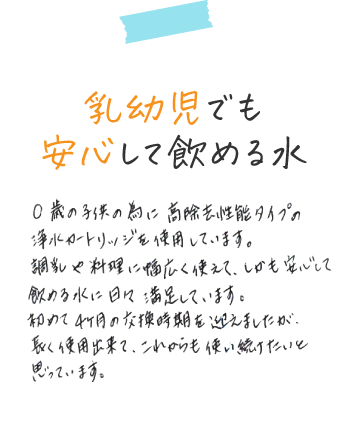 乳幼児でも
安心して飲める水
0歳の子供の為に高除去性能タイプの
浄水カートリッジを使用しています。
調乳や料理に幅広く使えて、しかも安心して
飲める水に日々満足しています。
初めて4ヶ月の交換時期を迎えましたが、
長く使用出来て、これからも使い続けたいと
思っています。